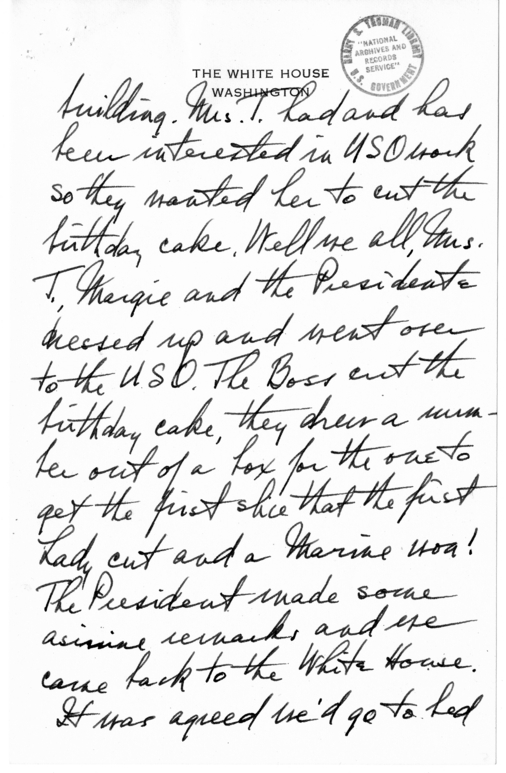 HARRY S. TRUMAN LIBRARY
"NATIONAL
ARCHIVES AND
RECORDS
SERVICE"
U.S. GOVERNMENT
THE WHITE HOUSE
WASHINGTON
building. Mrs. T. had and has
been interested in USO work
so they wanted her to cut the
birthday cake. Well we all, Mrs.
T., Margie and the President
dressed up and went over
to the USO. The Boss cut the
birthday cake, they drew a num-
ber out of a box for the one to
get the first slice that the first
Lady cut and a Marine won!
The President made some
asinine remarks and we
came back to the White House.
It was agreed we'd go to bed